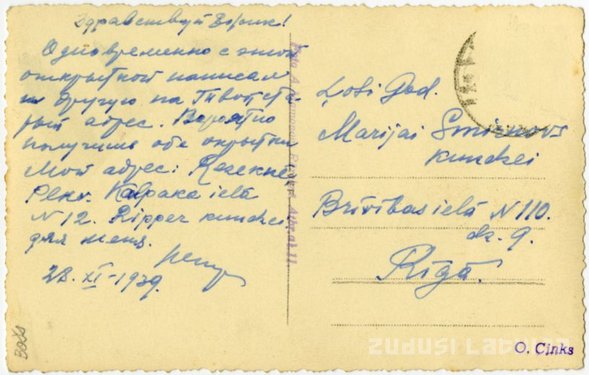 Здравствуй Борик!
Одновременно с этой
открыткой написал
и другую на Твой ста-
рый адрес. Вероятно
получишь обе окрытки
Мой адрес: Rēzekne
Pulkv. Kalpaka ielā
N 12. Ripper kundzei
для меня.
28. XI - 1939.
Ļoti God.
Marijai Smirnov
kundzei
Brīvības ielā N 110.
dz. 9.
Rīgā.
O. Cinks
ZUDUSĪ LATVIJA